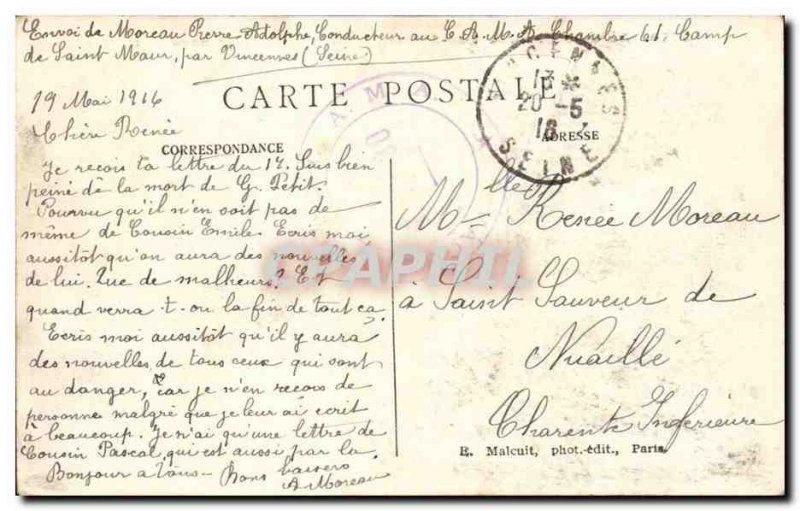 Envoi de Moreau Pierre-Adolphe, Conducteur au C.A.M.A. Chambre 61, Camp
de Saint Maur, par Vincennes (Seine)
19 Mai 1916
CARTE POSTALE
VINCENNES
13 *
20 -5
16
SEINE
ADRESSE
Chère Renée
CORRESPONDANCE
Je recois ta lettre du 17. Suis bien
peiné de la mort de G. Petit.
Pourvu qu'il n'en soit pas de
même de Cousin Emile. Ecris moi
aussitôt qu'on aura des nouvelles
de lui. Que de malheurs! Et
quand verra-t-on la fin de tout ça?
Ecris moi aussitôt qu'il y aura
des nouvelles de tous ceux qui sont
au danger, car je n'en recois de
personne malgré que je leur ai écrit
à beaucoup. Je n'ai qu'une lettre de
Cousin Pascal, qui est aussi par la
Bonjour a tous - Bons baisers
A Moreau
Mlle Renée Moreau
à Saint Sauveur de
Nuaillé
Charente Inférieure
E. Malcuit, phot.-édit., Paris
DELCAMPE